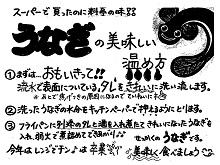 スーパーで買ったのに料亭の味!!
うなぎの美味しい
温め方
①まずは…おもいきって!!
流水で表面についている、タレをきれいに洗い流します。
②洗ったうなぎの水分をキッチンペーパーで押さえるようにとります。
③フライパンに別添のタレと酒を入れ煮たてきれいになったうなぎを
入れ、弱火で煮詰めてできあがり♪
せっかくのうなぎです。
今年はレンジでチン♪は卒業
美味しく食べましょう